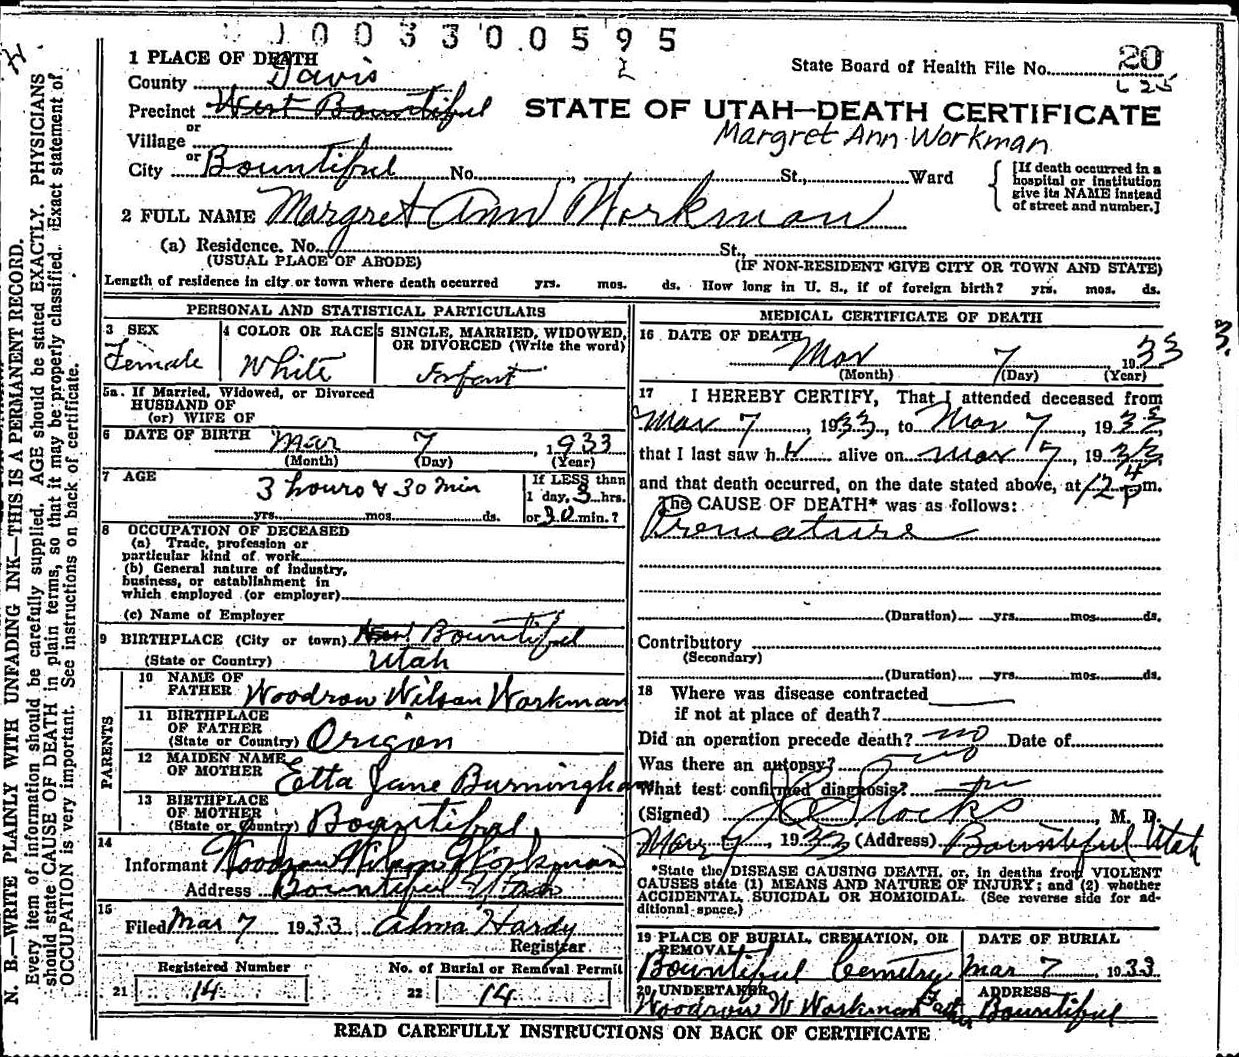 0 0 3 3 0 0 5 9 5
1 PLACE OF DEATH
County Davis
State Board of Health File No. 20
625
Precinct West Bountiful
STATE OF UTAH—DEATH CERTIFICATE
or
Village
Margret Ann Workman
or
City Bountiful No. , St., Ward
[If death occurred in a
hospital or institution
give its NAME instead
of street and number.]
2 FULL NAME Margret Ann Workman
(a) Residence. No. St.,
(USUAL PLACE OF ABODE) (IF NON-RESIDENT GIVE CITY OR TOWN AND STATE)
Length of residence in city or town where death occurred yrs. mos. ds. How long in U. S., if of foreign birth? yrs. mos. ds.
PERSONAL AND STATISTICAL PARTICULARS
3 SEX
Female
4 COLOR OR RACE
White
5 SINGLE, MARRIED, WIDOWED,
OR DIVORCED (Write the word)
Infant
5a. If Married, Widowed, or Divorced
HUSBAND OF
(or) WIFE OF
6 DATE OF BIRTH Mar 7, 1933
(Month) (Day) (Year)
7 AGE
3 hours & 30 min
yrs. mos. ds.
If LESS than
1 day, 3 hrs.
or 30 min.?
8 OCCUPATION OF DECEASED
(a) Trade, profession or
particular kind of work
(b) General nature of industry,
business, or establishment in
which employed (or employer)
(c) Name of Employer
9 BIRTHPLACE (City or town) West Bountiful
(State or Country) Utah
PARENTS
10 NAME OF
FATHER Woodrow Wilson Workman
11 BIRTHPLACE
OF FATHER
(State or Country) Origon
12 MAIDEN NAME
OF MOTHER Etta Jane Burningham
13 BIRTHPLACE
OF MOTHER
(State or Country) Bountiful
14
Informant Woodrow Wilson Workman
Address Bountiful Utah
15
Filed Mar 7 1933 Alma Hardy
Registrar
Registered Number
21 14
No. of Burial or Removal Permit
22 14
MEDICAL CERTIFICATE OF DEATH
16 DATE OF DEATH
Mar 7 1933
(Month) (Day) (Year)
17 I HEREBY CERTIFY, That I attended deceased from
Mar 7, 1933, to Mar 7, 1933
that I last saw h alive on Mar 7, 1933
and that death occurred, on the date stated above, at 12 m.
The CAUSE OF DEATH* was as follows:
Premature
(Duration) yrs. mos. ds.
Contributory
(Secondary)
(Duration) yrs. mos. ds.
18 Where was disease contracted
if not at place of death?
Did an operation precede death? no Date of
Was there an autopsy? no
What test confirmed diagnosis?
(Signed) Stocks, M. D.
Mar 7, 1933 (Address) Bountiful Utah
*State the DISEASE CAUSING DEATH, or, in deaths from VIOLENT
CAUSES state (1) MEANS AND NATURE OF INJURY; and (2) whether
ACCIDENTAL, SUICIDAL OR HOMICIDAL. (See reverse side for ad-
ditional space.)
19 PLACE OF BURIAL, CREMATION, OR
REMOVAL
Bountiful Cemetry
DATE OF BURIAL
Mar 7, 1933
20 UNDERTAKER
Woodrow W Workman Father
ADDRESS
Bountiful
READ CAREFULLY INSTRUCTIONS ON BACK OF CERTIFICATE
N. B.—WRITE PLAINLY WITH UNFADING INK—THIS IS A PERMANENT RECORD.
Every item of information should be carefully supplied. AGE should be stated EXACTLY. PHYSICIANS
should state CAUSE OF DEATH in plain terms, so that it may be properly classified. Exact statement of
OCCUPATION is very important. See instructions on back of certificate.
3.